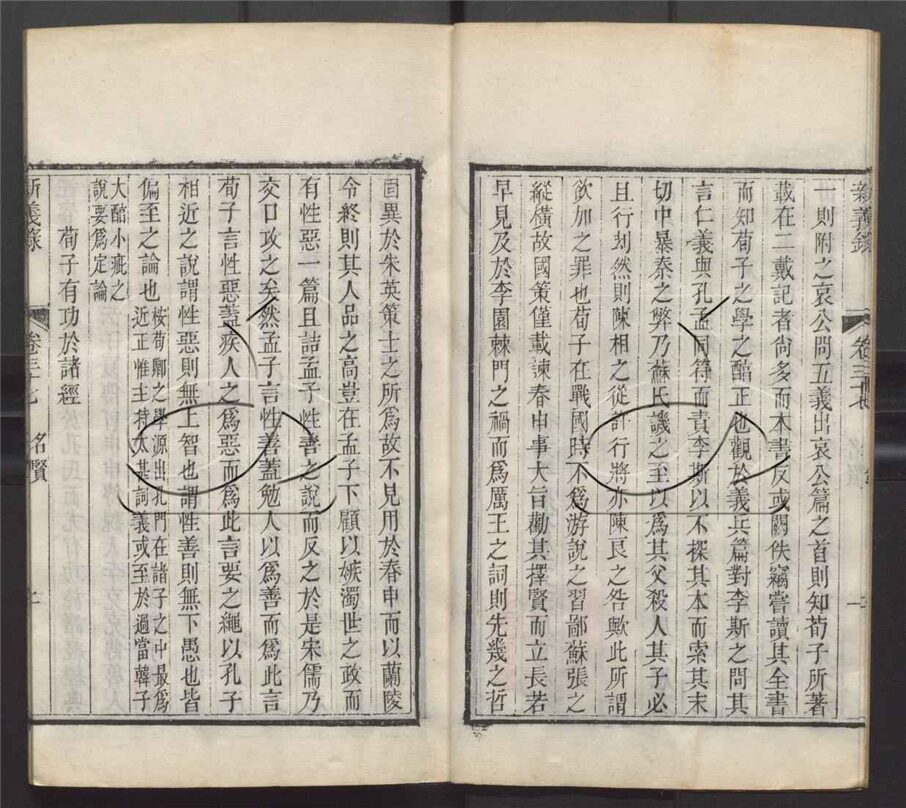 新義錄
卷三十七
一則附之哀公問五義出哀公篇之首則知荀子所著
載在二戴記者尙多而本書反或闕佚竊嘗讀其全書
而知荀子之學之醇正也觀於義兵篇對李斯之問其
言仁義與孔孟同符而責李斯以不探其本而索其末
切中暴秦之弊乃蘇氏譏之至以爲其父殺人其子必
且行刼然則陳相之從許行將亦陳良之咎歟此所謂
欲加之罪也荀子在戰國時不爲游說之習鄙蘇張之
縱橫故國策僅載諫春申事大旨勸其擇賢而立長若
早見及於李園棘門之禍而爲厲王之詞則先幾之哲
固異於朱英策士之所爲故不見用於春申而以蘭陵
令終則其人品之高豈在孟子下顧以嫉濁世之政而
有性惡一篇且詰孟子性善之說而反之於是宋儒乃
交口攻之矣然孟子言性善蓋勉人以爲善而爲此言
荀子言性惡蓋疾人之爲惡而爲此言要之繩以孔子
相近之說謂性惡則無上智也謂性善則無下愚也皆
偏至之論也桉荀卿之學源出孔門在諸子之中最爲
近正惟主持太甚詞義或至於過當韓子
大醇小疵之
說要爲定論
荀子有功於諸經
新義錄
卷三十七
名賢